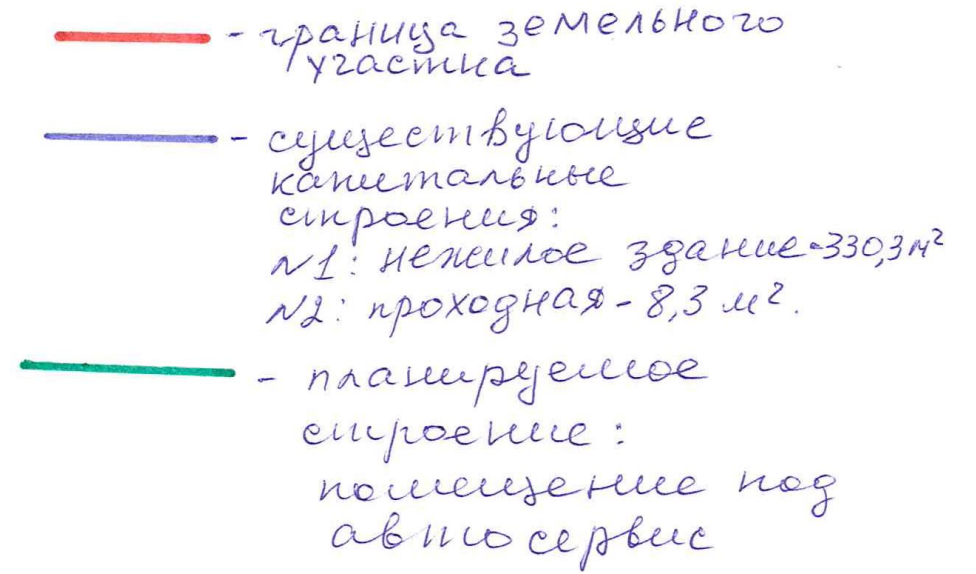 - граница земельного
участка
- существующие
капитальные
строения:
N1: нежилое здание-330,3м²
N2: проходная - 8,3 м².
- планируемое
строение:
помещение под
автосервис